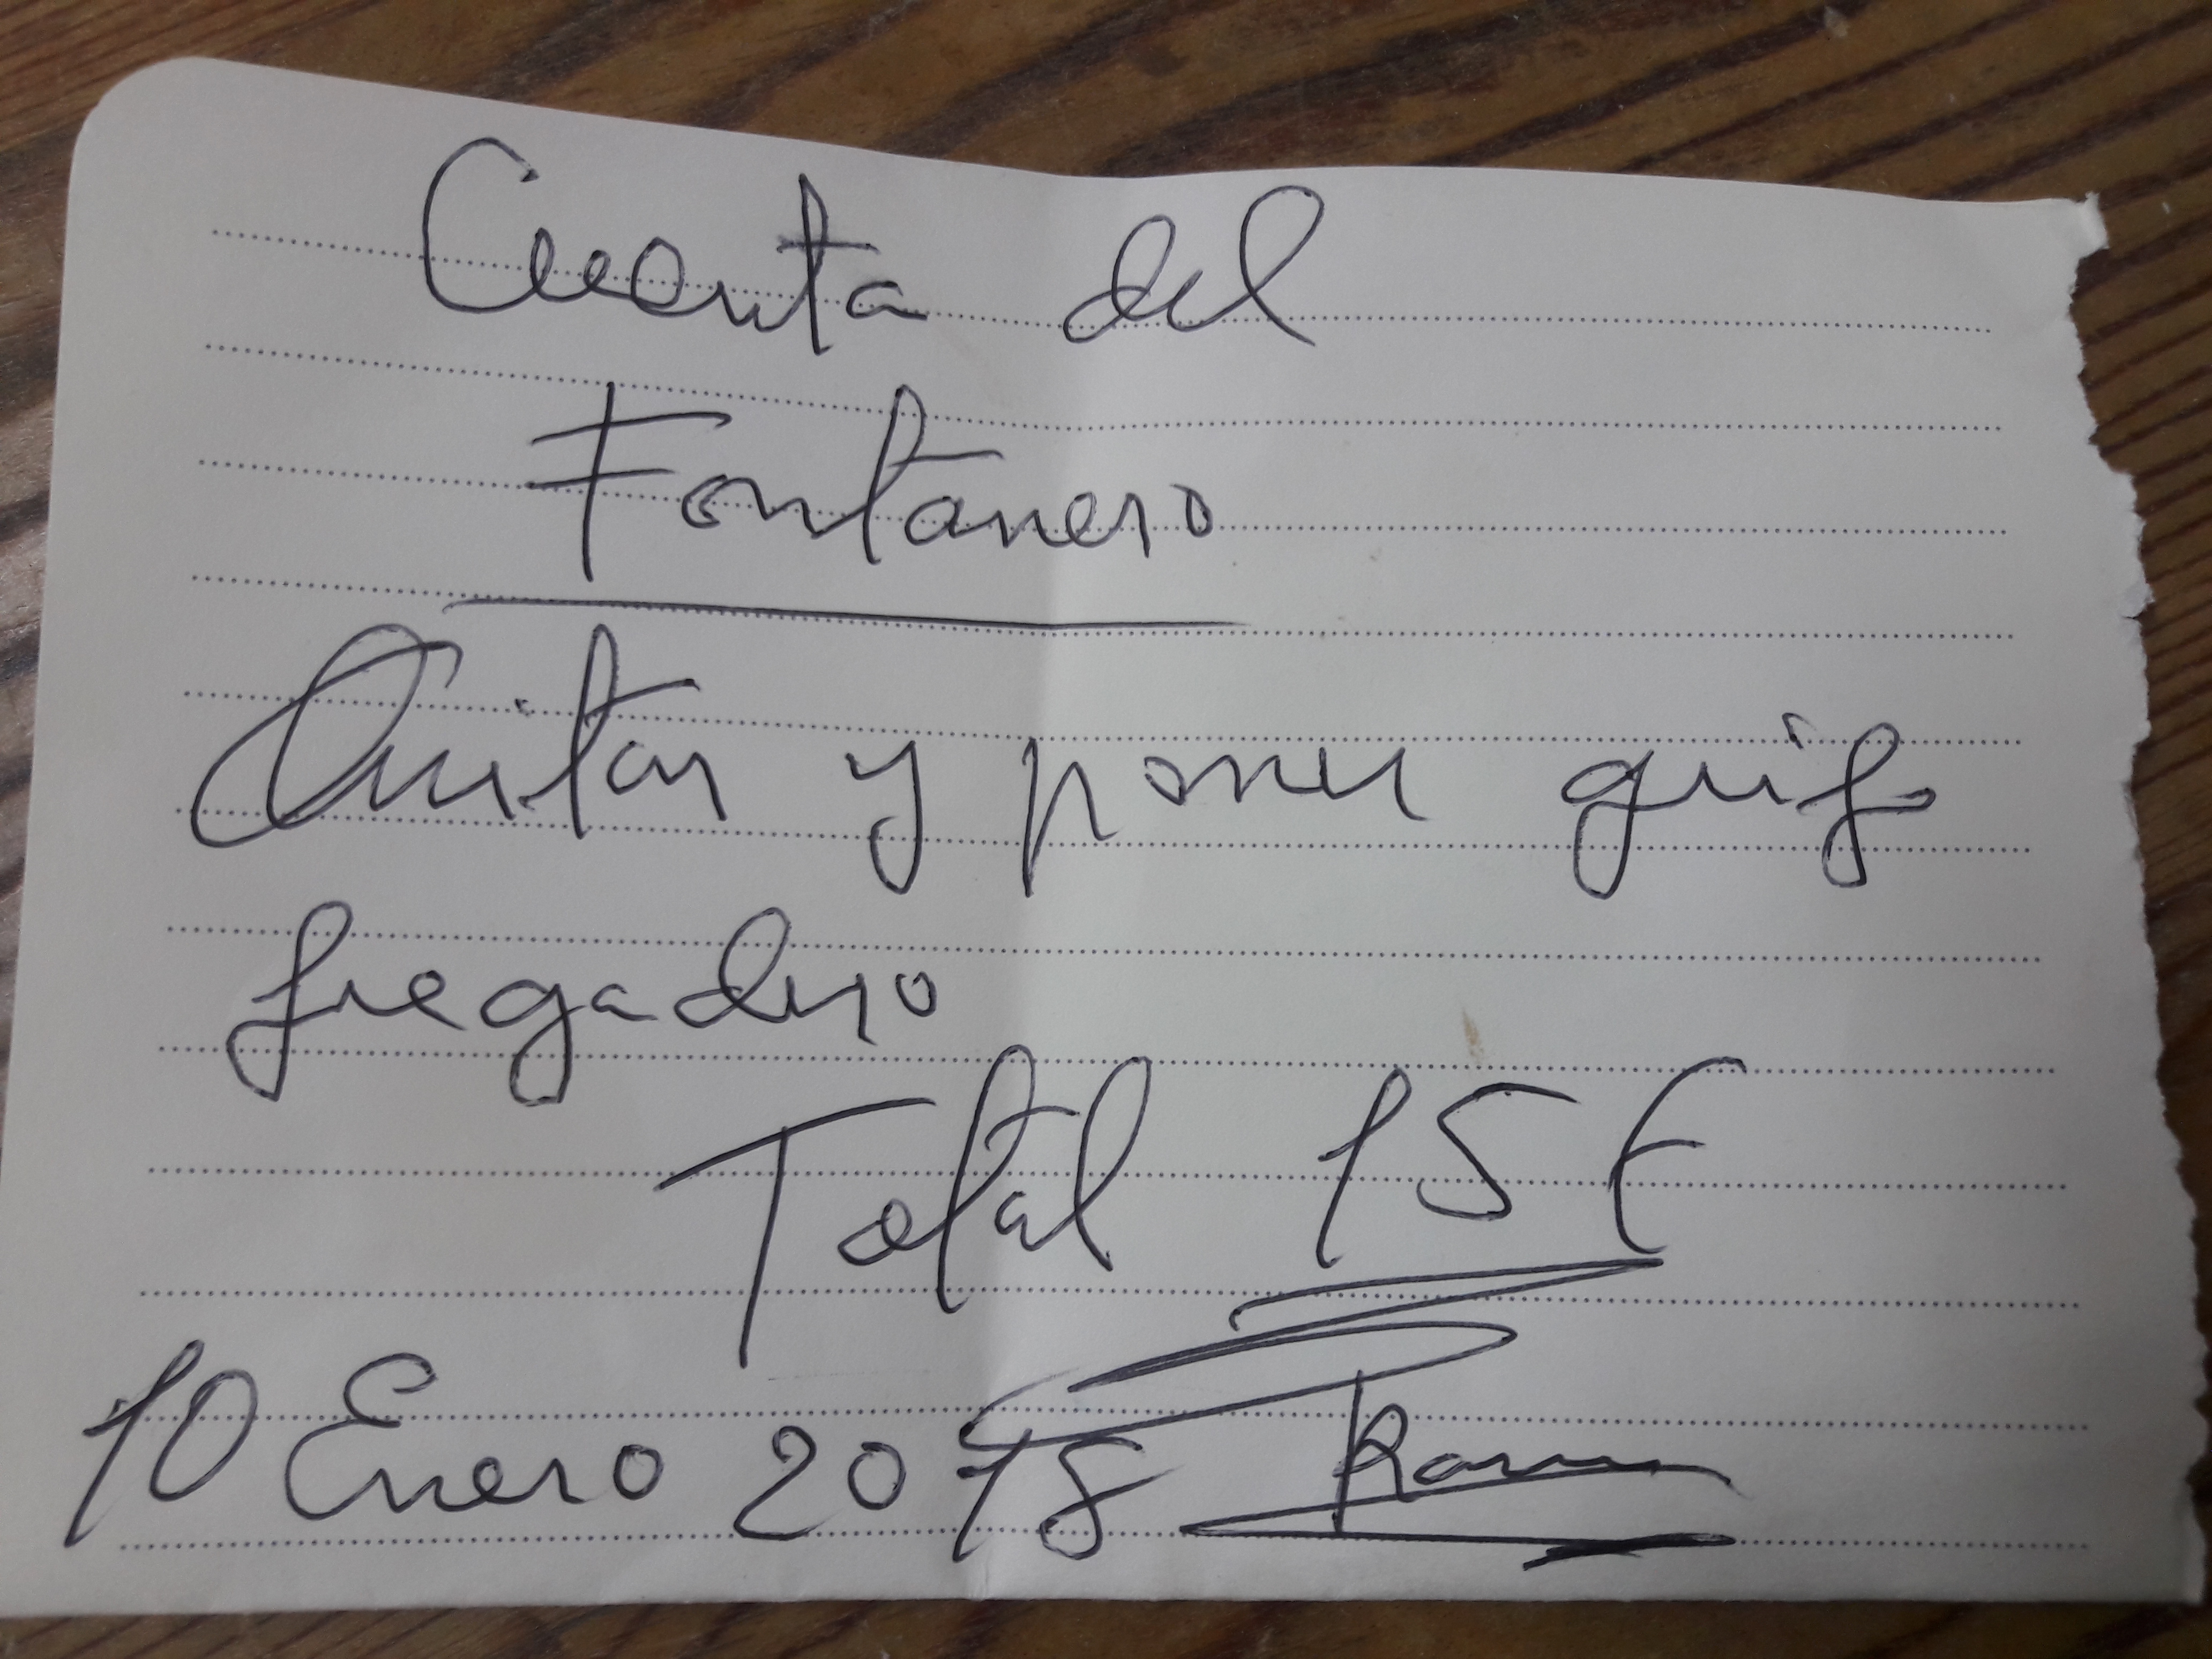 Cuenta del
Fontanero
Quitar y poner grifo
fregadero
Total 15€
10 Enero 2018